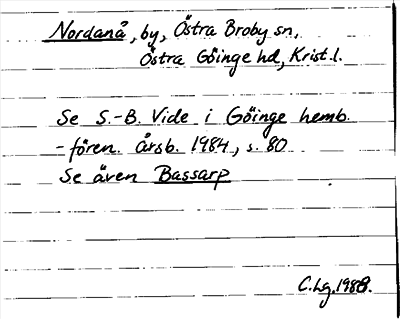 Nordanå, by, Östra Broby sn,
Östra Göinge hd, Krist. l.
Se S.-B. Vide i Göinge hemb.
- fören. årsb. 1984, s. 80
Se även Bassarp
C. Lg. 1988.